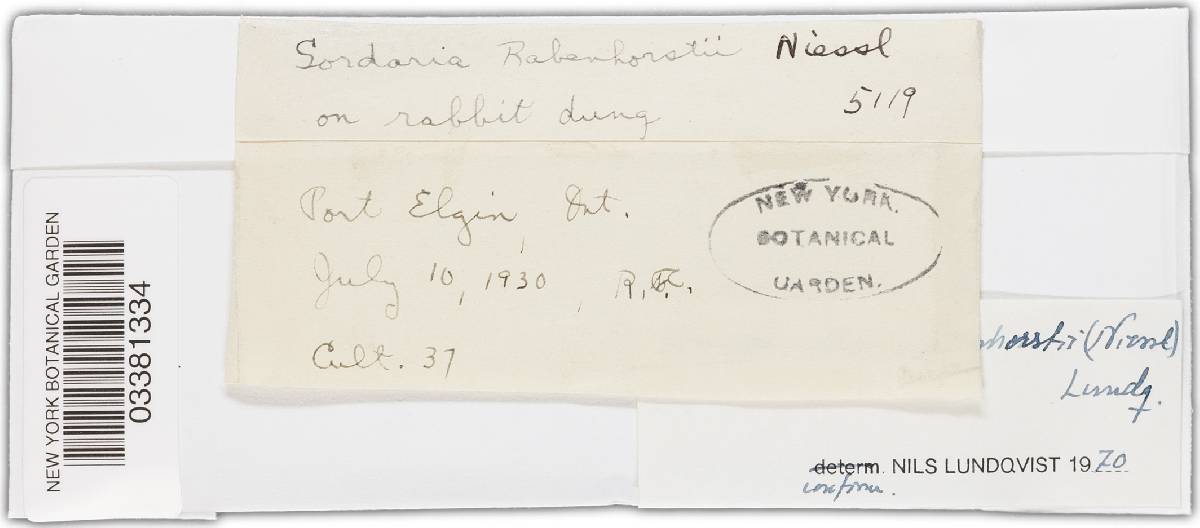 Sordaria Rabenhorstii Niessl
on rabbit dung 5119
Port Elgin, Ont.
July 10, 1930, R.F.C.
Cult. 37
NEW YORK
BOTANICAL
GARDEN.
NEW YORK BOTANICAL GARDEN
03381334
horstii (Niessl)
Lundq.
determ. NILS LUNDQVIST 1970
confirm.